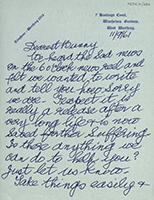 7 Hastings Court,
Winchelsea Gardens,
West Worthing.
11/9/61
Dearest Bunny
We heard the sad news
on the 6 o'clock news reel and
felt we wanted to write
and tell you how sorry
we are. I expect it is
really a release after a
very long life & now
saved further suffering.
Is there anything we
can do to help you?
Just let us know.
Take things easily &